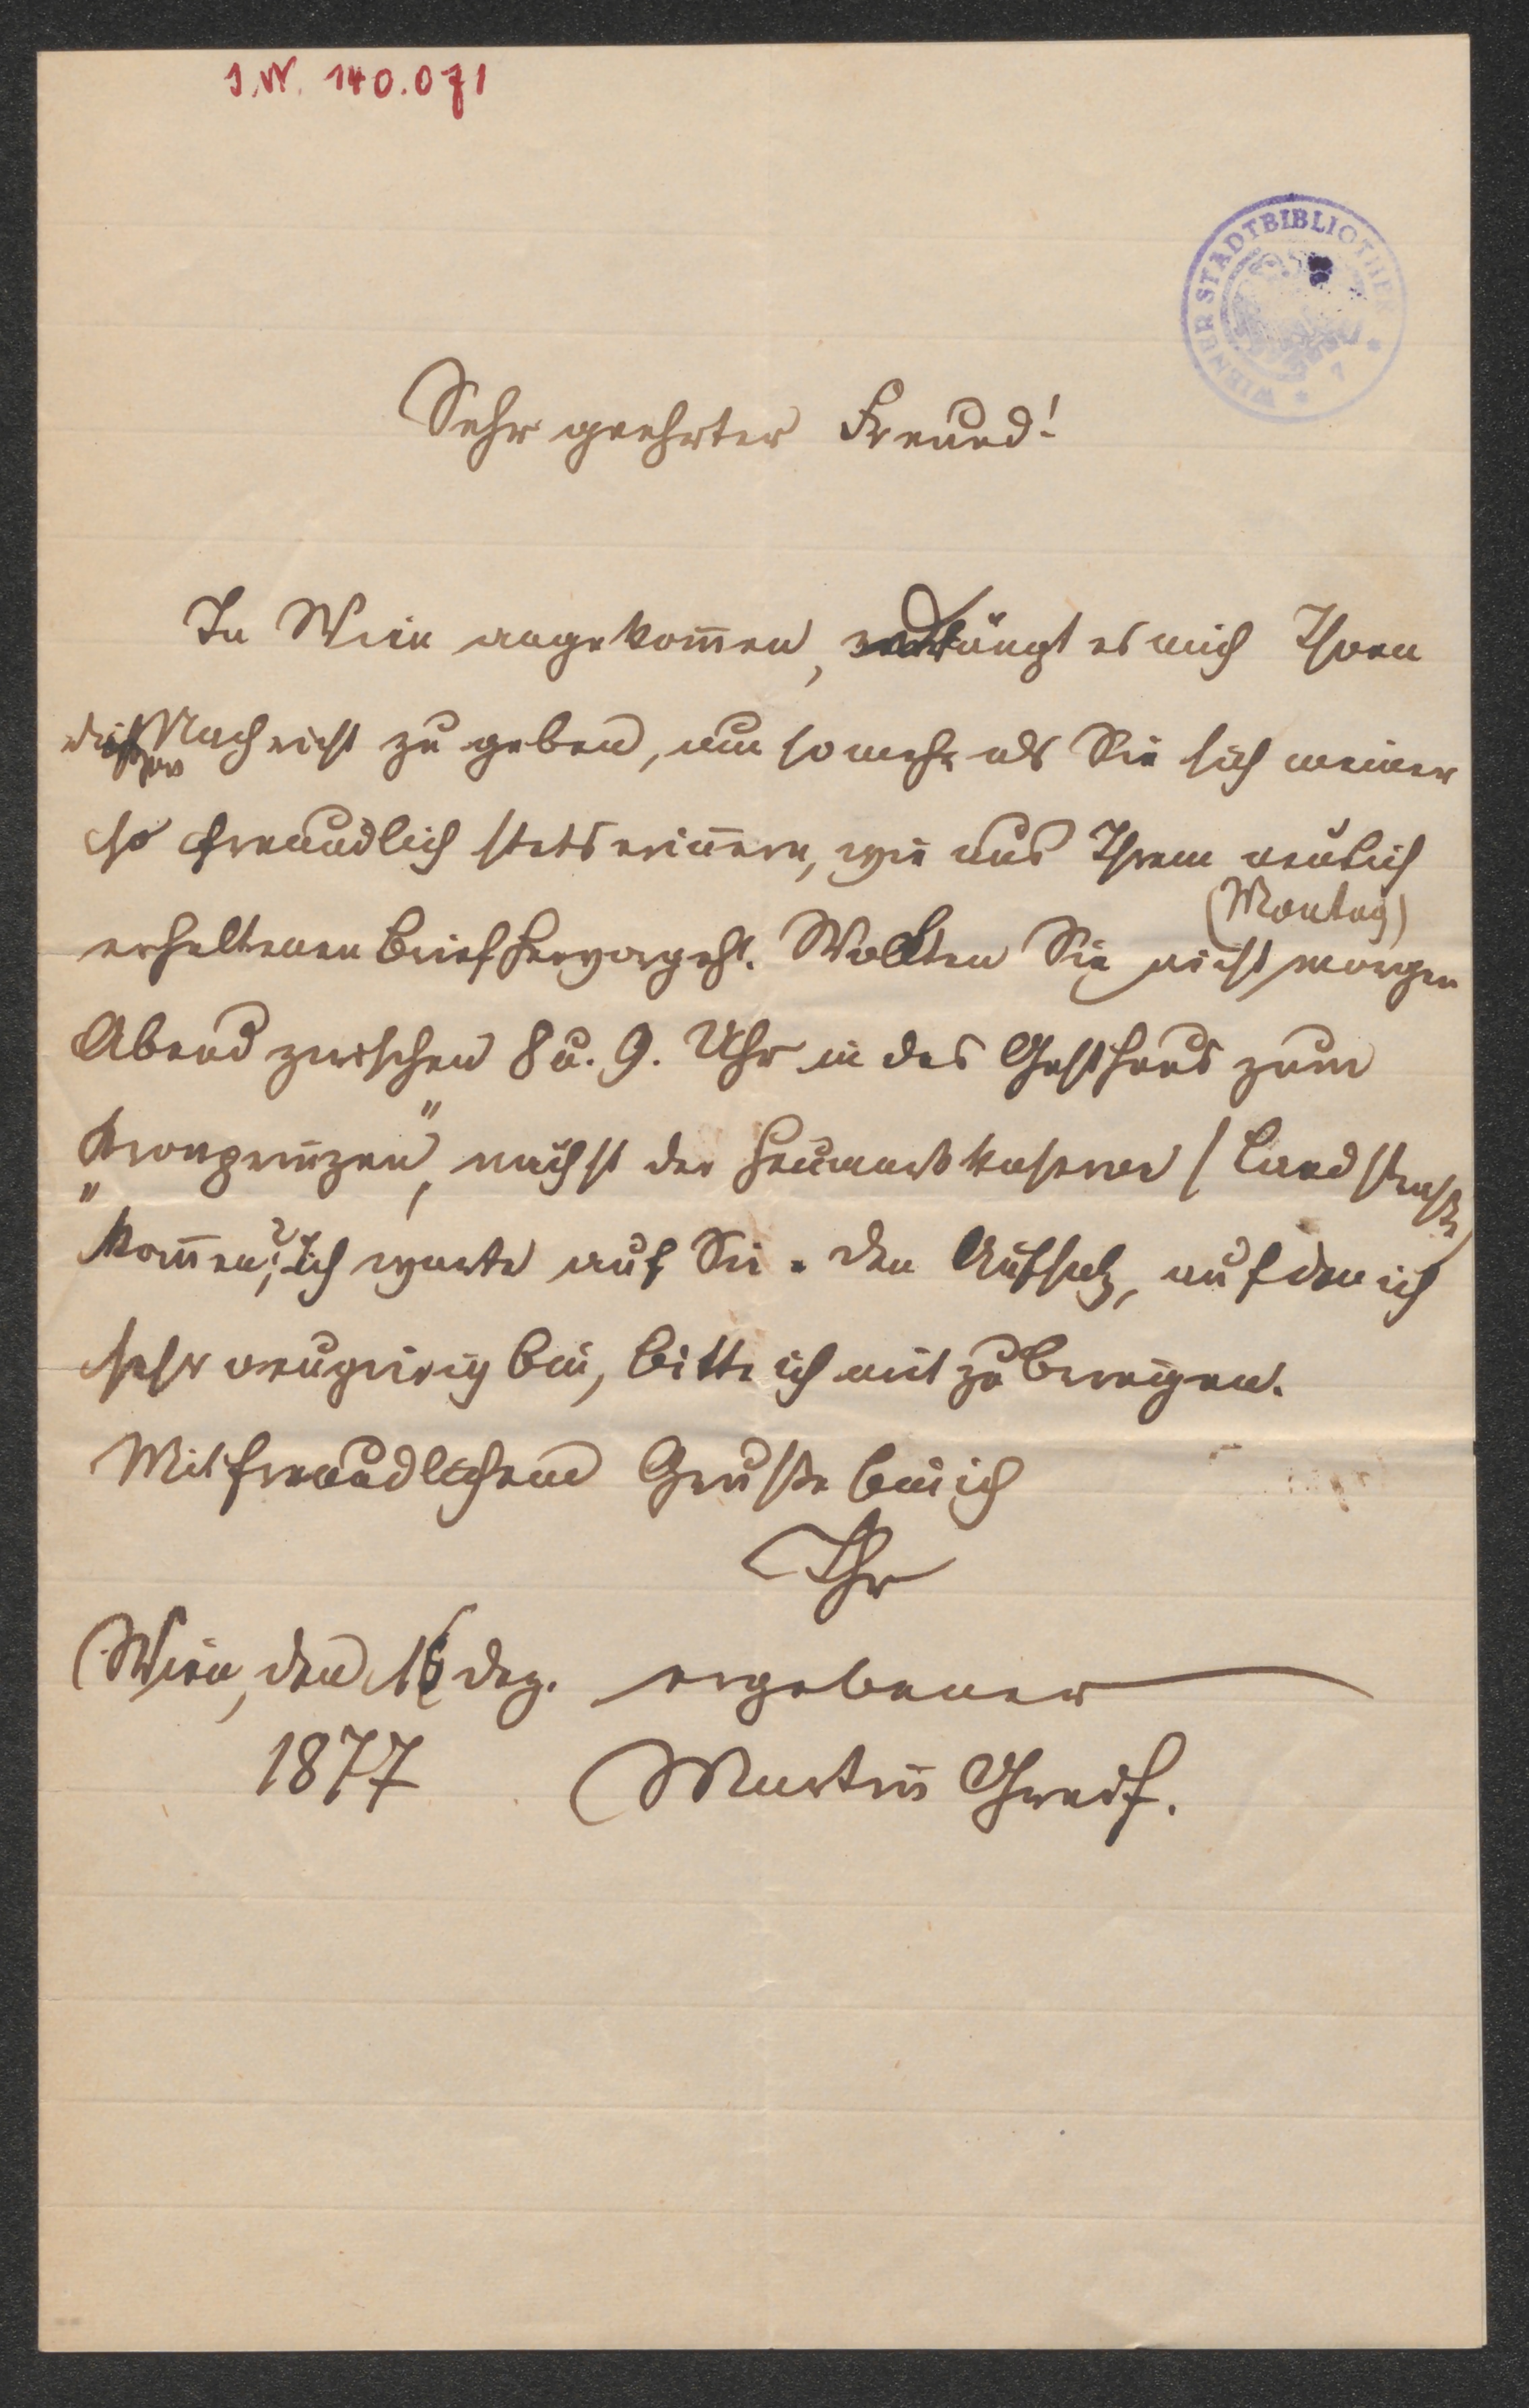 I.N. 140.071
WIENER STADTBIBLIOTHEK * 7 *
Sehr geehrter Freund!
In Wien angekom̄en, drängt es mich Ihnen
Nachricht zu geben, um so mehr als Sie sich meiner
so freundlich stets erin̄ern, wie aus Ihrem neulich
erhaltenen Brief hervorgeht. Wollten Sie nicht morgen
(Montag)
Abend zwischen 8 u. 9. Uhr in das Gasthaus zum
„Kronprinzen“, nächst der Heumarktkaserne (Landstraße)
kom̄en? Ich warte auf Sie. Den Aufsatz, auf den ich
sehr neugierig bin, bitte ich mit zu bringen.
Mit freundlichem Gruße bin ich
Ihr
Wien, den 16 Dez. ergebener
1877 Martin Greif.